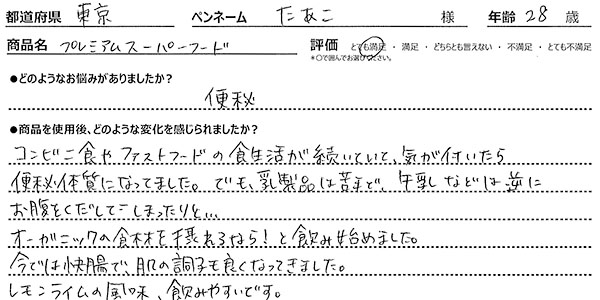 都道府県 東京 ペンネーム たあこ 様 年齢 28 歳
商品名 プレミアムスーパーフード 評価 とても満足・満足・どちらとも言えない・不満足・とても不満足
*○で囲んでお選びください。
●どのようなお悩みがありましたか?
便秘
●商品を使用後、どのような変化を感じられましたか?
コンビニ食やファストフードの食生活が続いていて、気が付いたら
便秘体質になってました。でも、乳製品は苦手で、牛乳などは逆に
お腹をくだしてしまったりと...
オーガニックの食材を摂れるなら!と飲み始めました。
今では快腸で、肌の調子も良くなってきました。
レモンライムの風味、飲みやすいです。